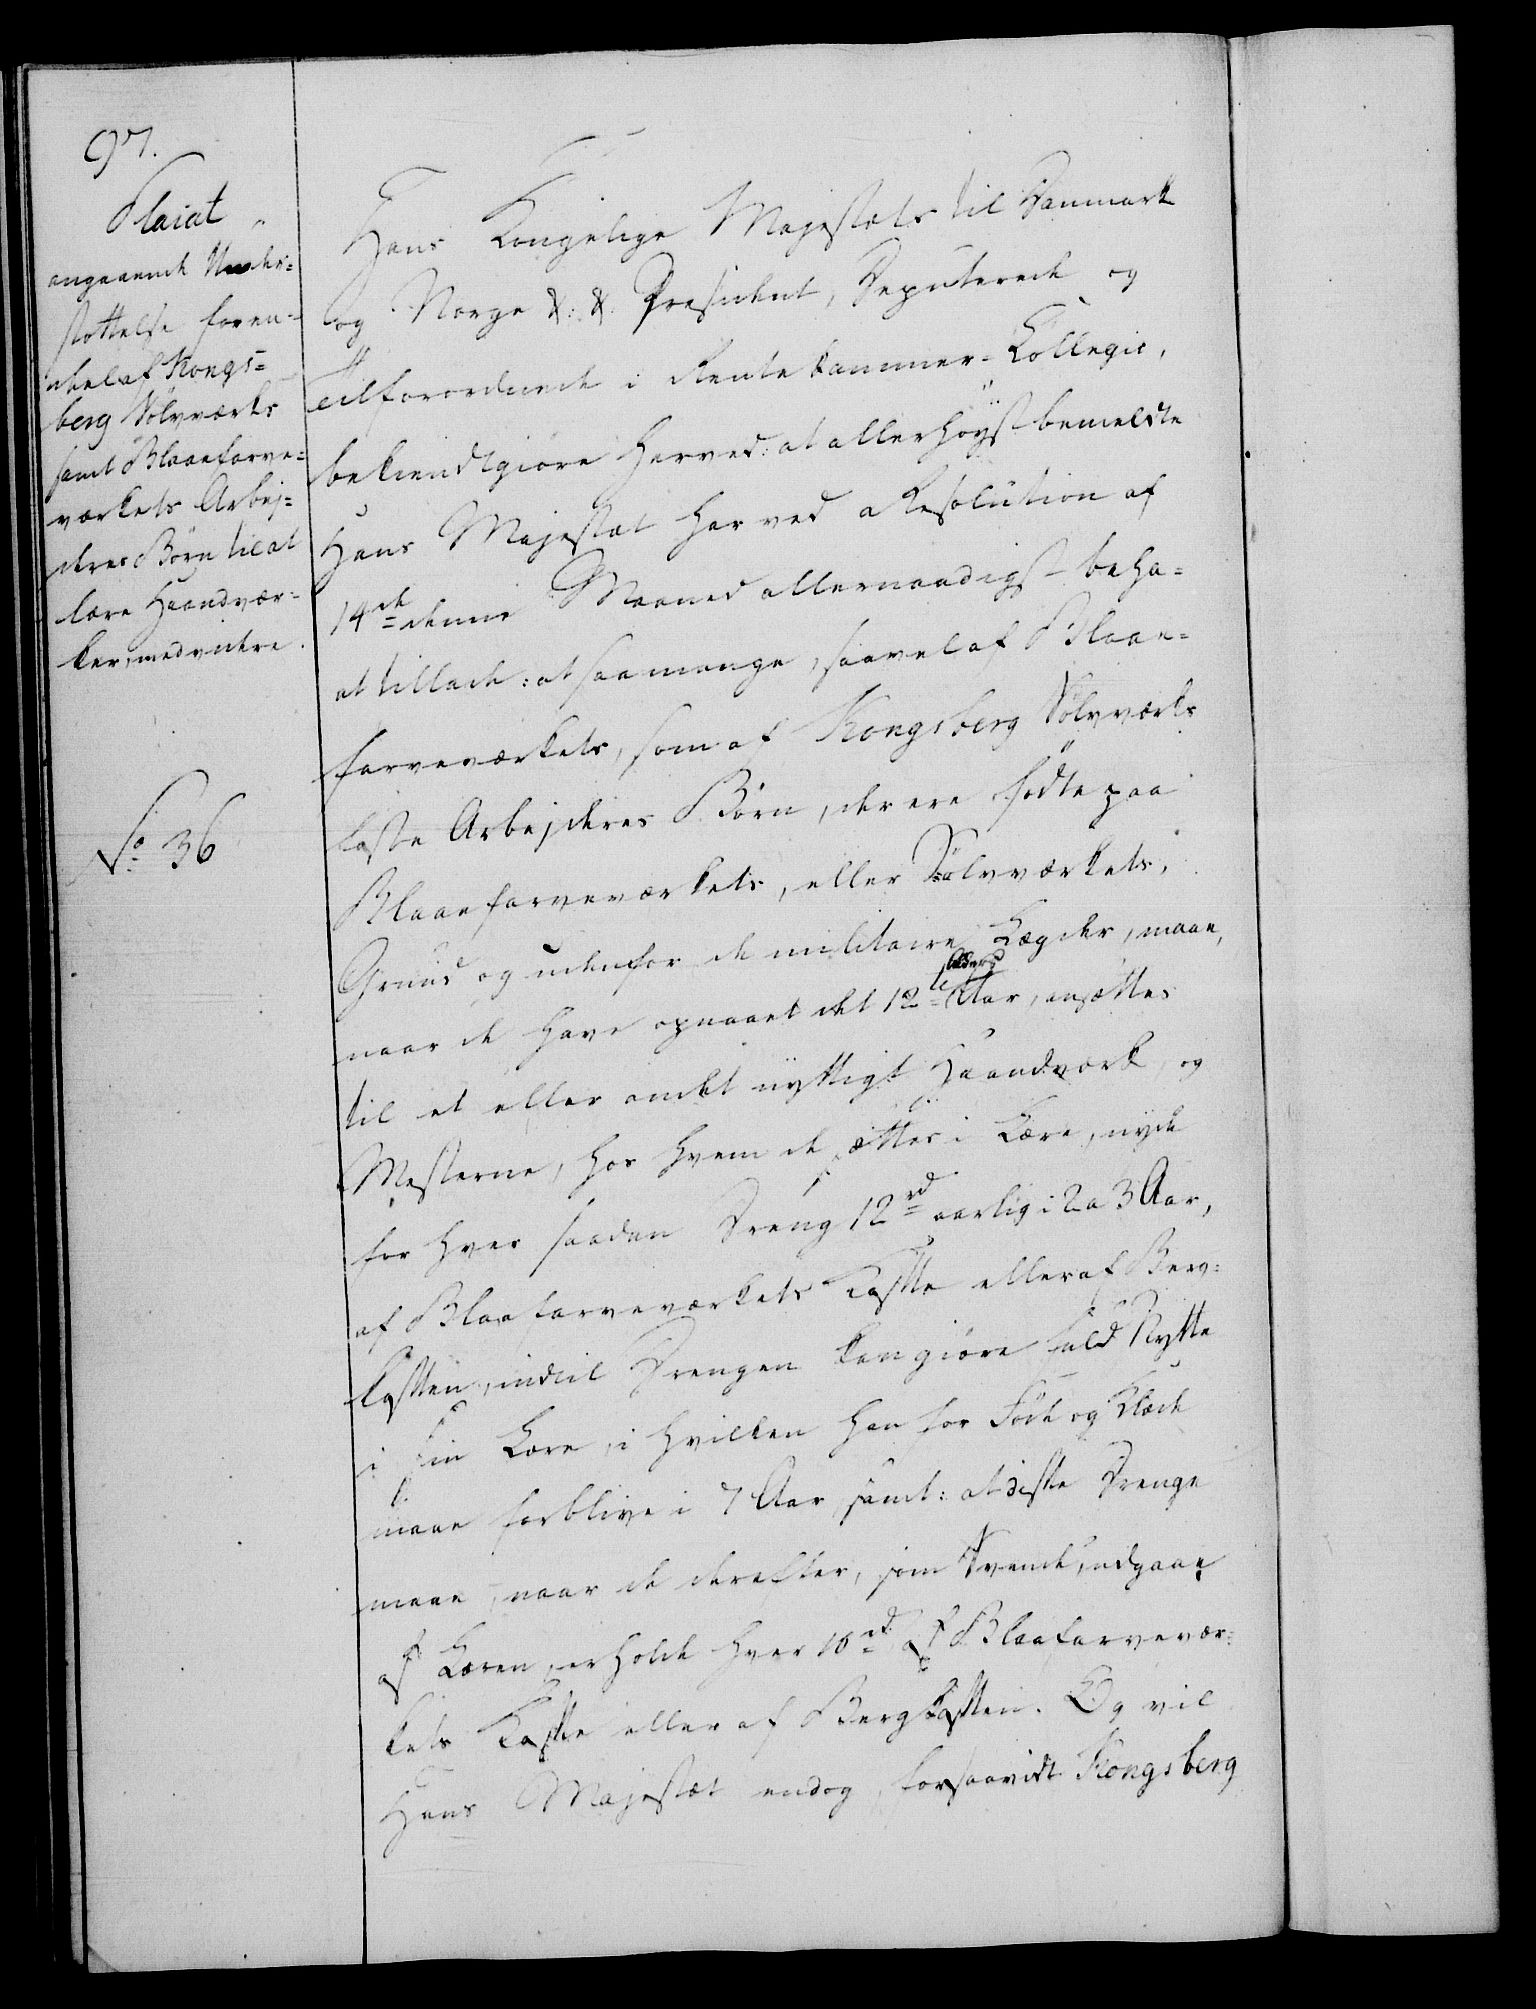 97.
Placat
angaaende Under=
støttelse for en-
deel af Kongs=
berg Sølvværks
samt Blaaefarve=
værkets Arbej=
deres Børn til at
lære Haandvær=
ker, med videre.
No. 36
Hans Kongelige Majestæts til Danmark
og Norge &: &. Præsident, Deputerede og
Tilforordnede i Rentekammer-Collegio,
bekiendtgiøre herved: at allerhøyst-bemeldte
Hans Majestæt har ved Resolution af
14de denne Maaned allernaadigst beha=
at tillade: at saa mange, saavel af Blaae=
farveværkets, som af Kongsberg Sølvværks
faste Arbejderes Børn, der ere fødte paa
Blaaefarveværkets, eller Sølvværkets,
Grund og udenfor de militaire Lægder, maae,
naar de have opnaaet det 12te Alders Aar, ansættes
til et eller andet nyttigt Haandværk, og
Mesterne, hos hvem de sættes i Lære, nyde
for hver saadan Dreng 12rd aarlig i 2 a 3 Aar,
af Blaafarveværkets Casse eller af Berg=
kassen, indtil Drengen kan giøre fuld Nytte
i sin Lære, i hvilken han for Føde og Klæde
maae forblive i 7 Aar, samt: at disse Drenge
maae, naar de derefter, som Svende, udgaae
af Læren, erholde hver 10rd af Blaafarvevær=
kets Casse eller af Bergkassen. Og vil
Hans Majestæt endog, forsaavidt Kongsberg